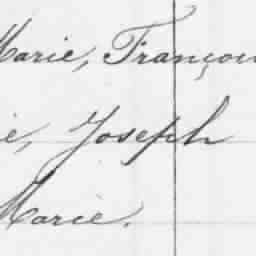 Marie, Françoi
ie, Joseph
Marie.